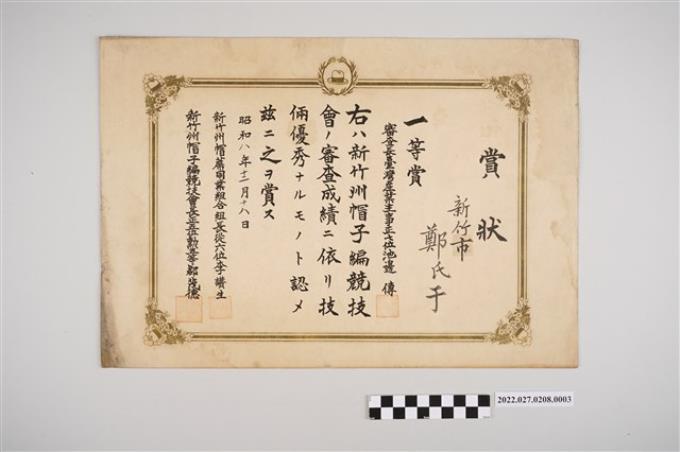 賞狀
新竹市
鄭氏于
一等賞
審查長臺灣產業主事正七位池邊傳
右ハ新竹州帽子編競技
會ノ審查成績ニ依リ技
倆優秀ナルモノト認メ
茲ニ之ヲ賞ス
昭和八年十二月十八日
新竹州帽蓆同業組合組長從六位李讚生
新竹州帽子編競技會長正五位勳等
2022.027.0208.0003